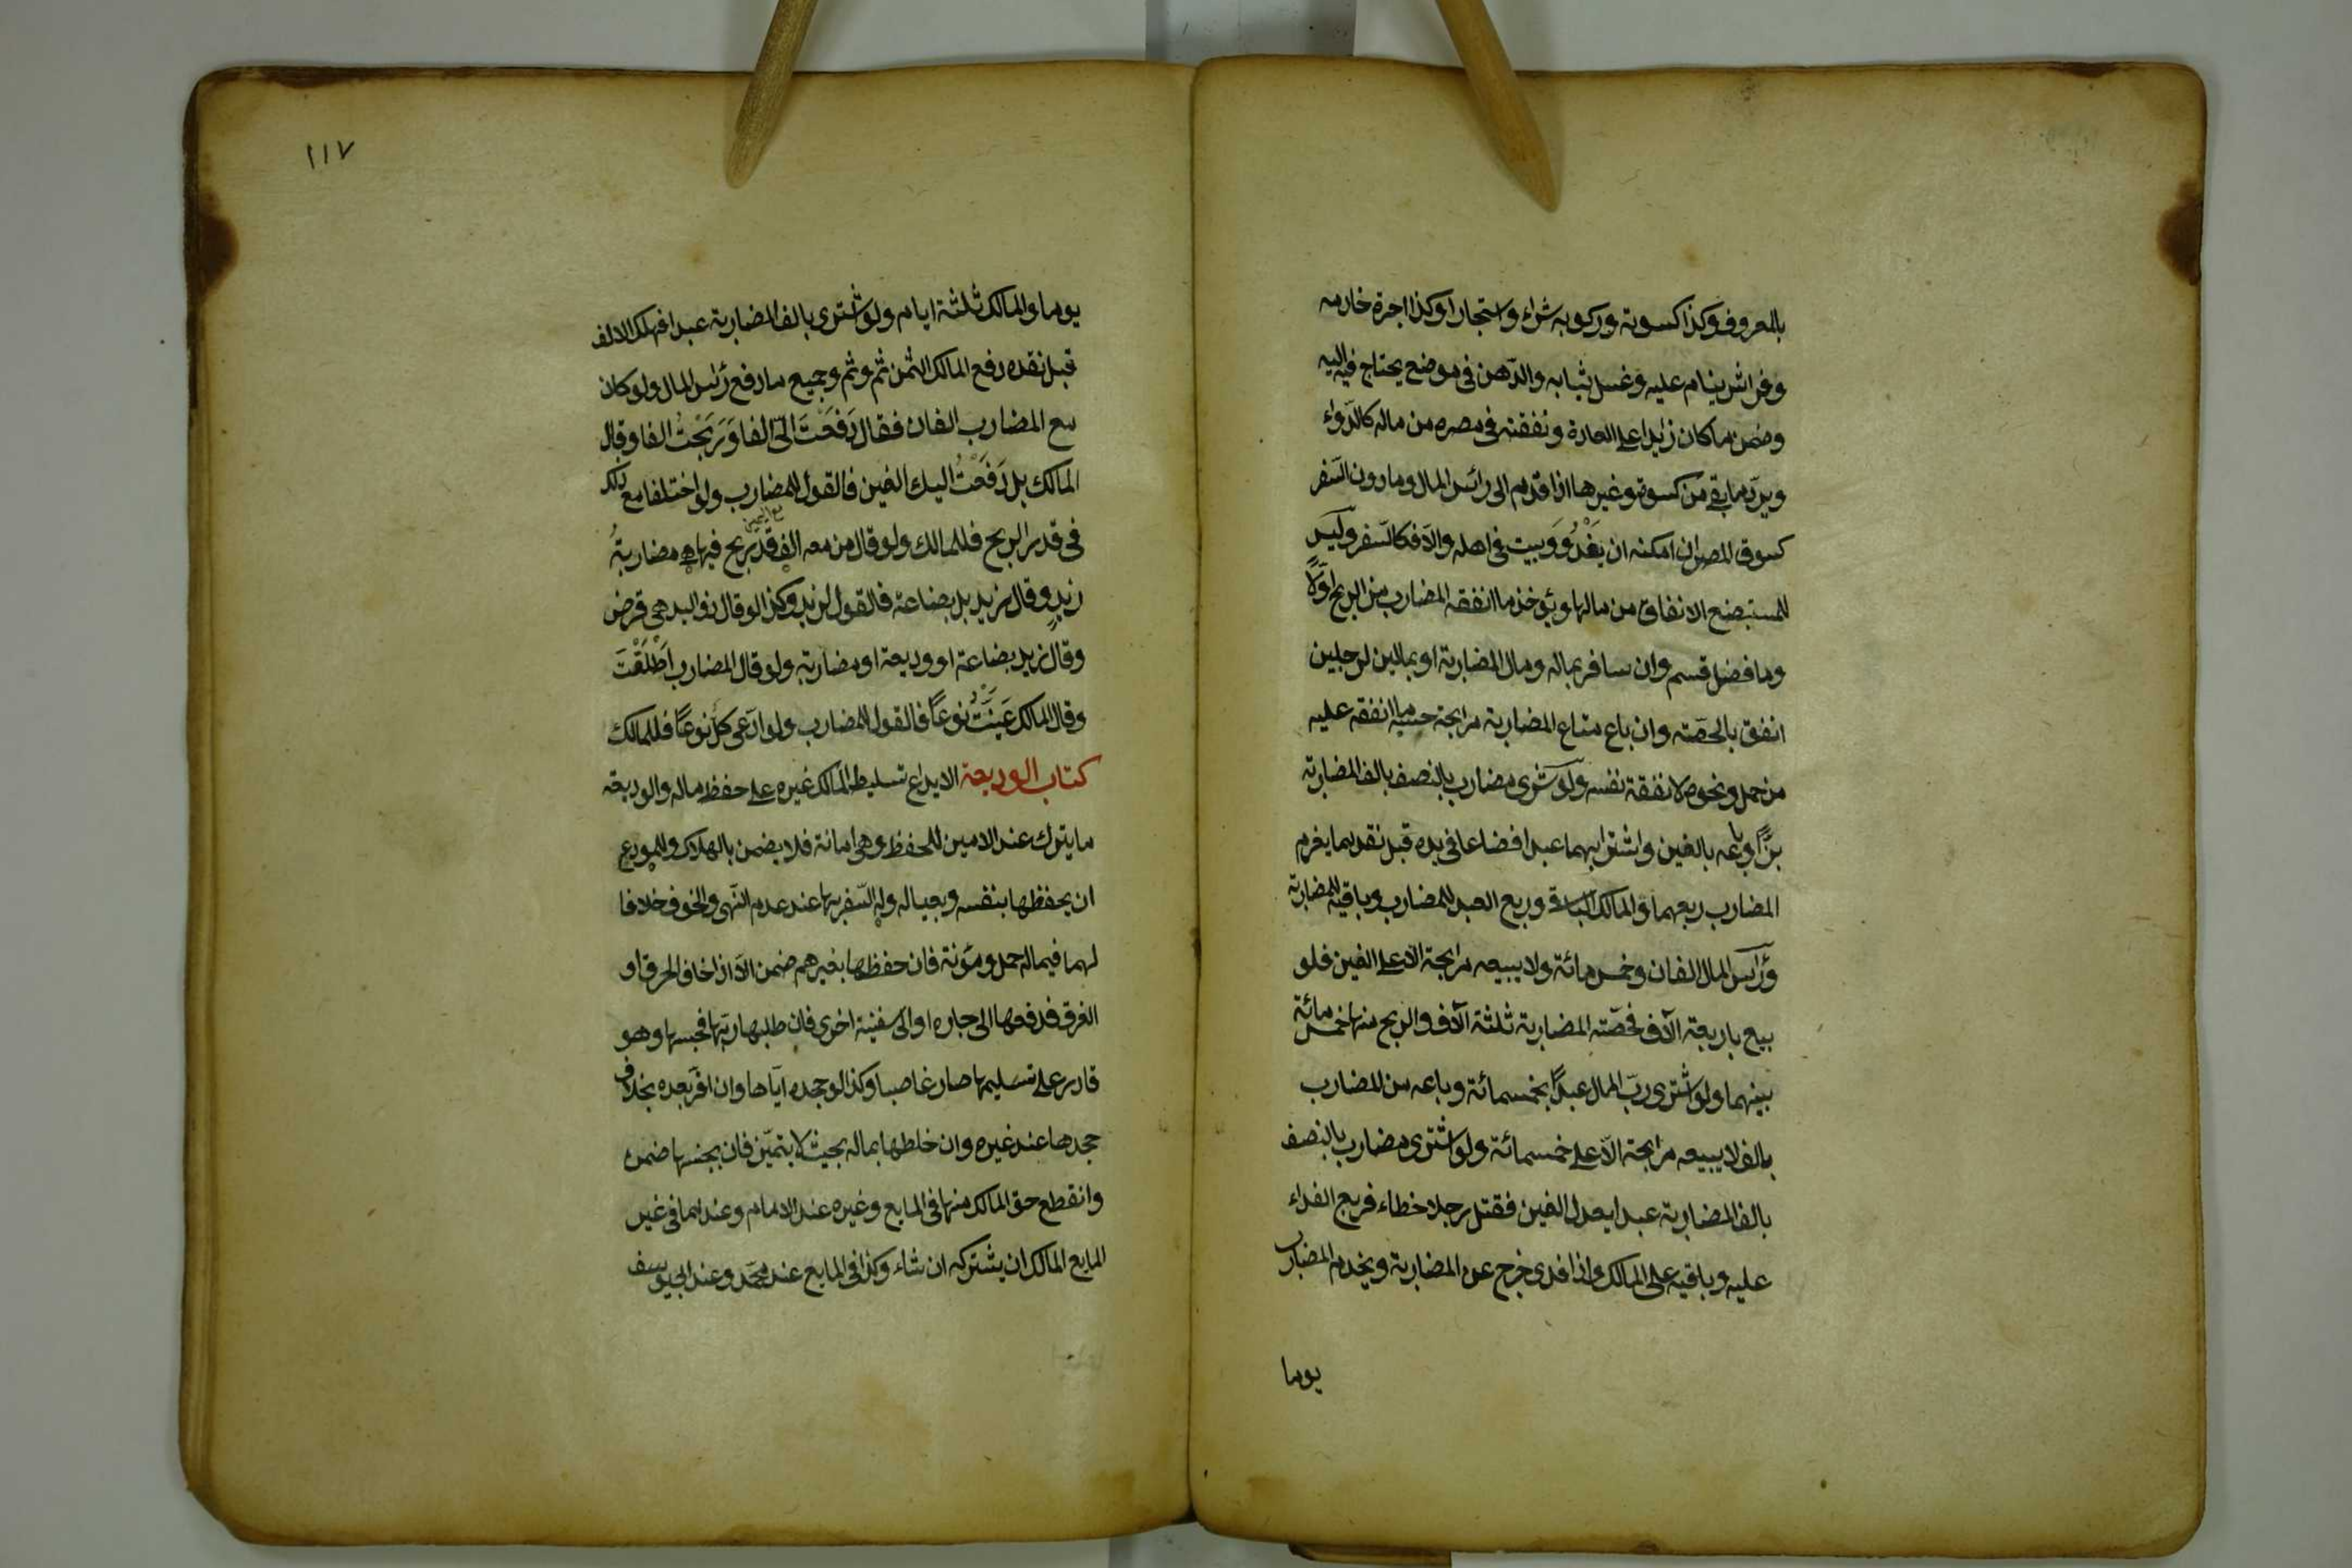 بالمعروف وكذا كسوته وركوبه شراء واستجارا وكذا اجرة خادمه
وفراش ينام عليه وغسل ثيابه والدّهن فى موضع يحتاج فيه اليه
وضمن ما كان زايدا على العادة ونفقته فى مصره من ماله كالدّواء
ويردّ ما بقى من كسوة وغيرها اذا قدم الى رأس المال وما دون السّفر
كسوق المصر ان امكنه ان يَغْدُوَ ويبيت فى اهله والّا فكالسّفر وليس
للمستبضع الانفاق من مالها ويؤخذ ما انفقه المضارب من الربح اوّلًا
وما فضل قسم وان سافر بماله ومال المضاربة او بمالين لرجلين
انفق بالحصّة وان باع متاع المضاربة مرابحة حسب ما انفقه عليه
من حمل ونحوه لا نفقة نفسه ولو شرى مضارب بالنصف بالف المضاربة
بزًّا وباعه بالفين واشترا بهما عبدا فضاعا فى يده قبل نقدهما يغرم
المضارب ربعهما والمالك الباقى وربع العبد للمضارب وباقيه للمضاربة
ورأس المال الفان وخمس مائة ولا يبيعه مرابحة الّا على الفين فلو
بيع باربعة آلاف فحصّته المضاربة ثلثة آلاف والربح منها خمس مائة
بينهما ولو اشترى ربّ المال عبدًا بخمسمائة وباعه من المضارب
بالف لا يبيعه مرابحة الّا على خمسمائة ولو اشترى مضارب بالنصف
بالف المضاربة عبدا يعدل الفين فقتل رجلا خطاء فربع الفداء
عليه وباقيه على المالك واذا فدى خرج عن المضاربة ويخدم المضارب
يوما
١١٧
يوما والمالك ثلثة ايام ولو اشترى بالف المضاربة عبدا فهلك الالف
قبل نقده دفع المالك الثمن ثم وثم وجميع ما دفع رأس المال ولو كان
مع المضارب الفان فقال دَفَعْتَ الىّ الفا ورَبَحْتُ الفا وقال
المالك بل دَفَعْتُ اليك الفين فالقول للمضارب ولو اختلفا مع ذلك
فى قدر الربح فللمالك ولو قال من معه الف قد ربح فيها هى مضاربةُ
مع اليمين
زيدٍ وقال زيد بل بضاعة فالقول لزيد وكذا لو قال ذو اليد هى قرض
وقال زيد بضاعة او وديعة او مضاربة ولو قال المضارب اَطْلَقْتَ
وقال المالك عَيَنْتُ نوعًا فالقول للمضارب ولو ادّعى كل نوعًا فللمالك
كتاب الوديعة الايداع تسليط المالك غيره على حفظ ماله والوديعة
ما يترك عند الامين للحفظ وهى امانة فلا يضمن بالهلاك وللمودع
ان يحفظها بنفسه وبعياله وله السّفر بها عند عدم النّهى والخوف خلافا
لهما فيما له حمل ومؤنة فان حفظها بغيرهم ضمن الّا اذا خاف الحرق او
الغرق فدفعها الى جاره او الى سفينة اخرى فان طلبها ربّها فحبسها وهو
قادر على تسليمها صار غاصبا وكذا لو جحده ايّاها وان اقرّ بعده بخلاف
جحدها عند غيره وان خلطها بماله بحيث لا يتميّز فان بجنسها ضمن
وانقطع حق المالك منها فى المايع وغيره عند الامام وعندهما فى غير
المايع المالك ان يشتركه ان شاء وكذا فى المايع عند محمّد وعند ابى يوسف